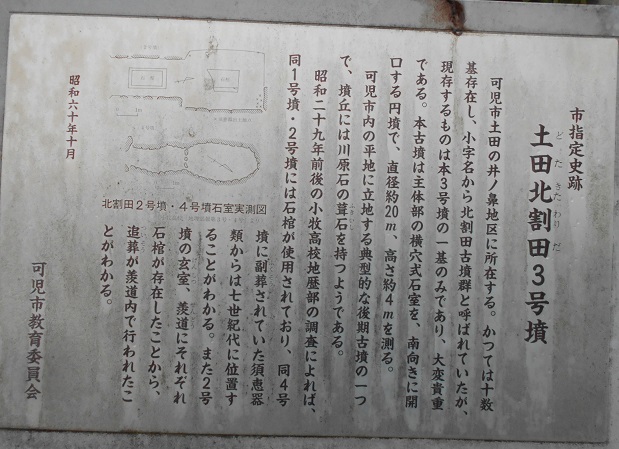 市指定史跡
どたきたわりだ
土田北割田3号墳
可児市土田の井ノ鼻地区に所在する。かつては十数
基存在し、小字名から北割田古墳群と呼ばれていたが、
現存するものは本3号墳の一基のみであり、大変貴重
である。本古墳は主体部の横穴式石室を、南向きに開
口する円墳で、直径約20m、高さ約4mを測る。
可児市内の平地に立地する典型的な後期古墳の一つ
で、墳丘には川原石の葺石を持つようである。
ふきいし
昭和二十九年前後の小牧高校地歴部の調査によれば、
同1号墳・2号墳には石棺が使用されており、同4号
墳に副葬されていた須恵器
類からは七世紀代に位置す
ることがわかる。また2号
墳の玄室、羨道にそれぞれ
石棺が存在したことから、
追葬が羨道内で行われたこ
とがわかる。
北割田2号墳・4号墳石室実測図
昭和六十年十月
可児市教育委員会